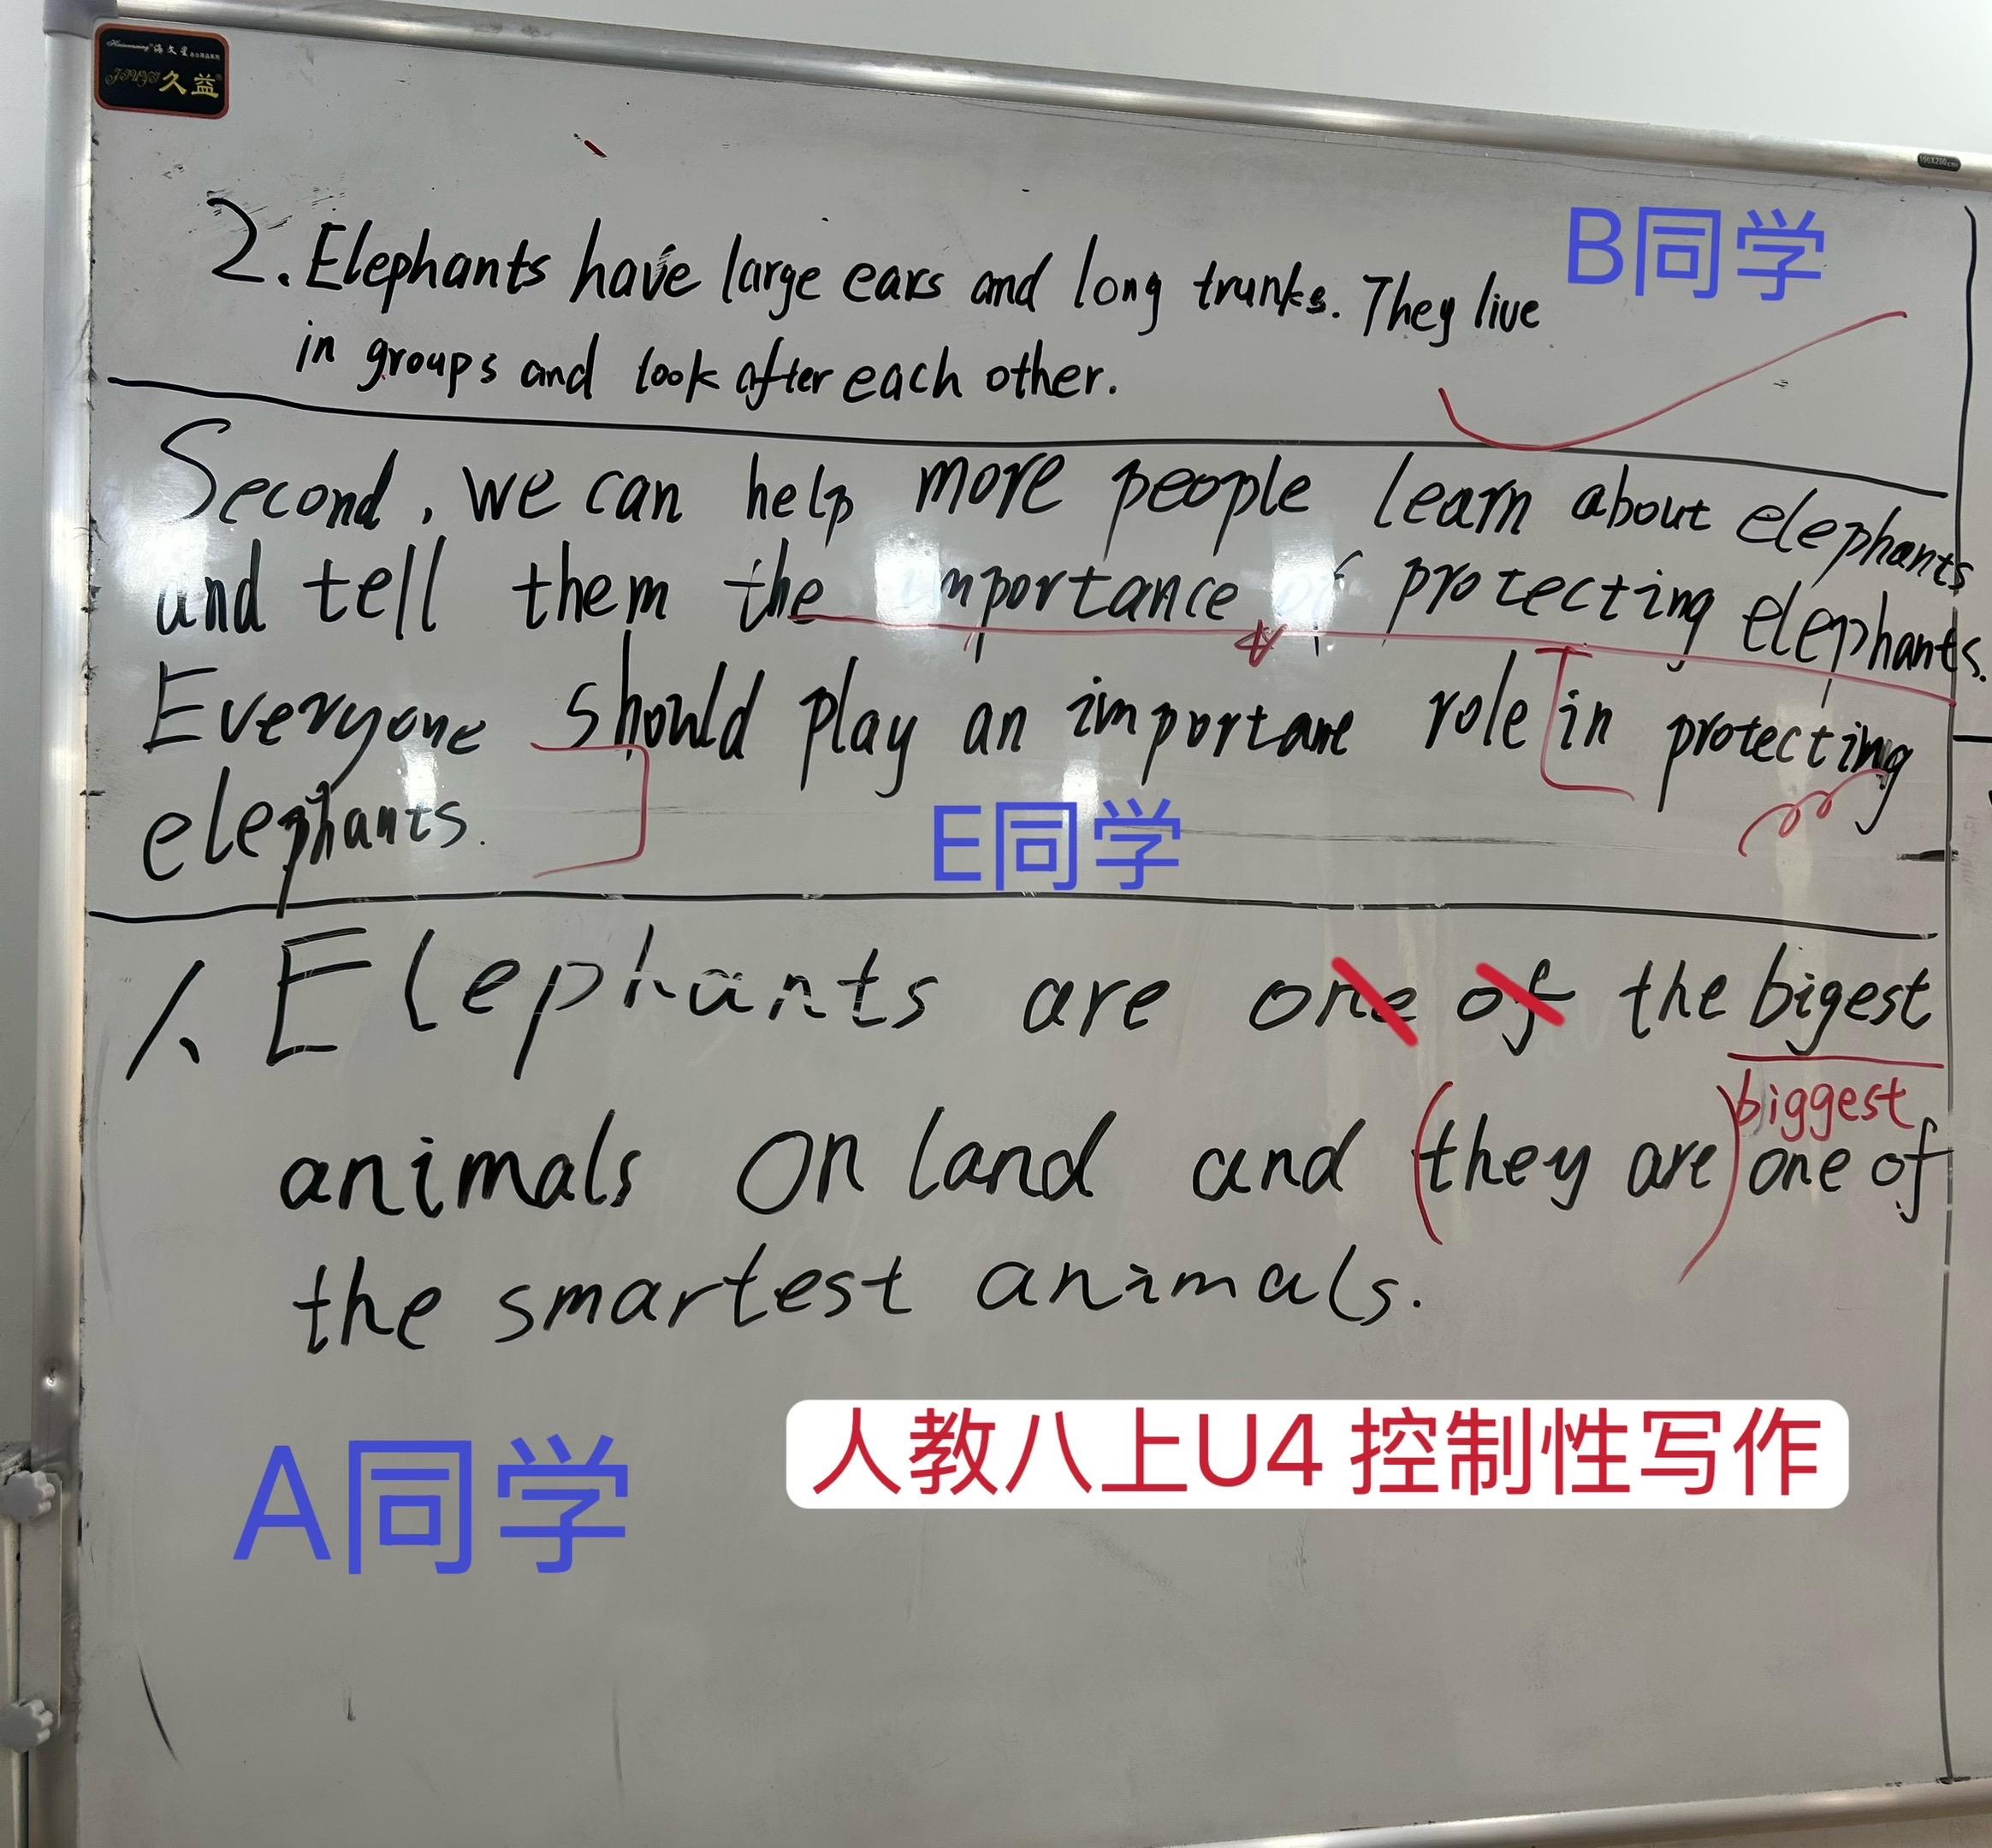 海文星
久益
2. Elephants have large ears and long trunks. They live
in groups and look after each other.
B同学
Second, we can help more people learn about elephants
and tell them the importance of protecting elephants.
Everyone should play an important role in protecting
elephants.
E同学
1. Elephants are one of the bigest
biggest
animals on land and (they are) one of
the smartest animals.
A同学
人教八上U4 控制性写作